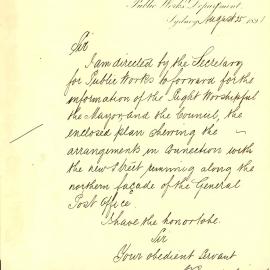 Public Works Department,
Sydney August 25 1891
Sir
I am directed by the Secretary
for Public Works to forward for the
information of the Right Worshipful
the Mayor and the Council, the
enclosed plan shewing the
arrangements in connection with
the new Street running along the
northern façade of the General
Post Office.
I have the honor to be
Sir
Your obedient Servant